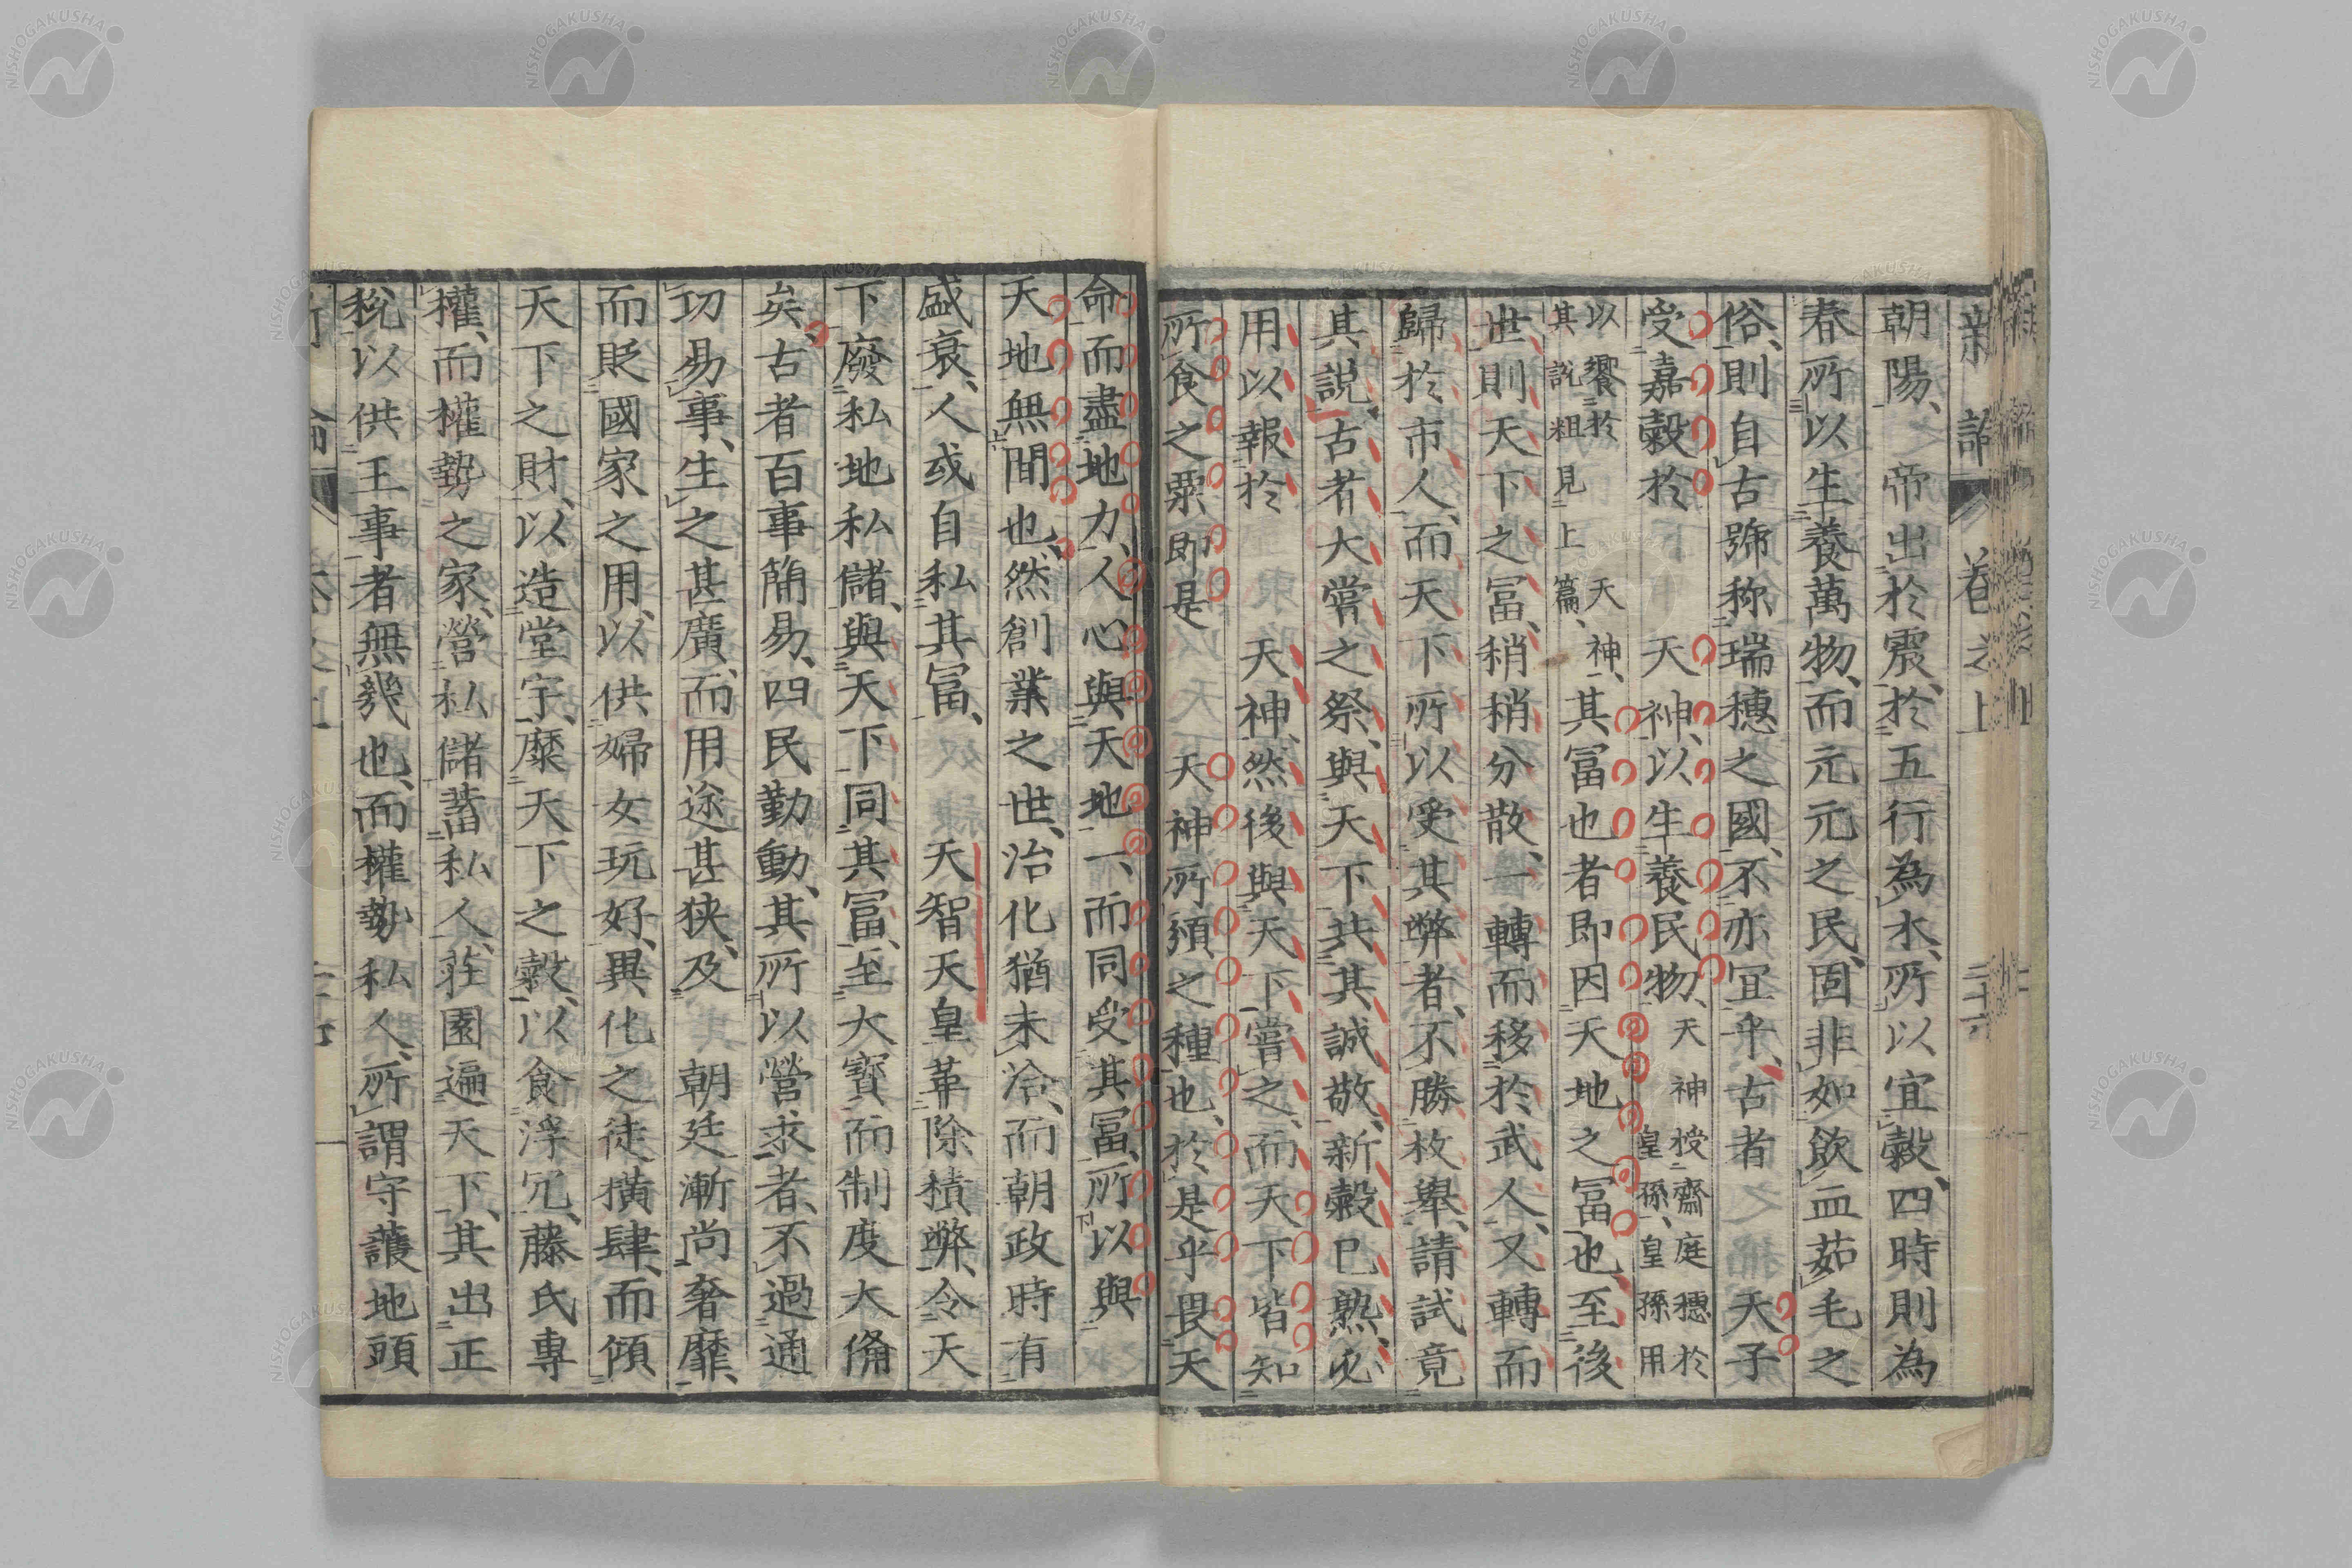 新論 卷之上 二十六
朝陽、 帝出於震、於五行為木、所以宜穀、四時則為
春所以生養萬物、而元元之民、固非如飲血茹毛之
俗、則自古號称瑞穗之國、不亦宜乎、古者 天子
受嘉穀於 天神、以生養民物、天神授齋庭穗於
皇孫、皇孫用
以饗於 天神、
其説粗見上篇、
其冨也者即因天地之冨也、至後
世則天下之冨、稍稍分散、一轉而移於武人、又轉而
歸於市人、而天下所以受其弊者、不勝枚舉、請試竟
其説、古者大嘗之祭、與天下共其誠敬、新穀已熟、必
用以報於 天神、然後與天下嘗之、而天下皆知
所食之粟即是 天神所頒之種也、於是乎畏天
命而盡地力、人心與天地一、而同受其冨、所以與
天地無間也、然創業之世、治化猶未洽、而朝政時有
盛衰、人或自私其冨、 天智天皇革除積弊、令天
下廢私地私儲、與天下同其冨、至大寶而制度大備
矣、古者百事簡易、四民勤動、其所以營求者、不過通
功易事、生之甚廣、而用途甚狭、及 朝廷漸尚奢靡、
而貶國家之用、以供婦女玩好、異化之徒橫肆、而傾
天下之財、以造堂宇、糜天下之穀、以食浮冗、藤氏專
權、而權勢之家、營私儲蓄私人、莊園遍天下、其出正
稅以供王事者無幾也、而權勢私人、所謂守護地頭
NISHOGAKUSHA